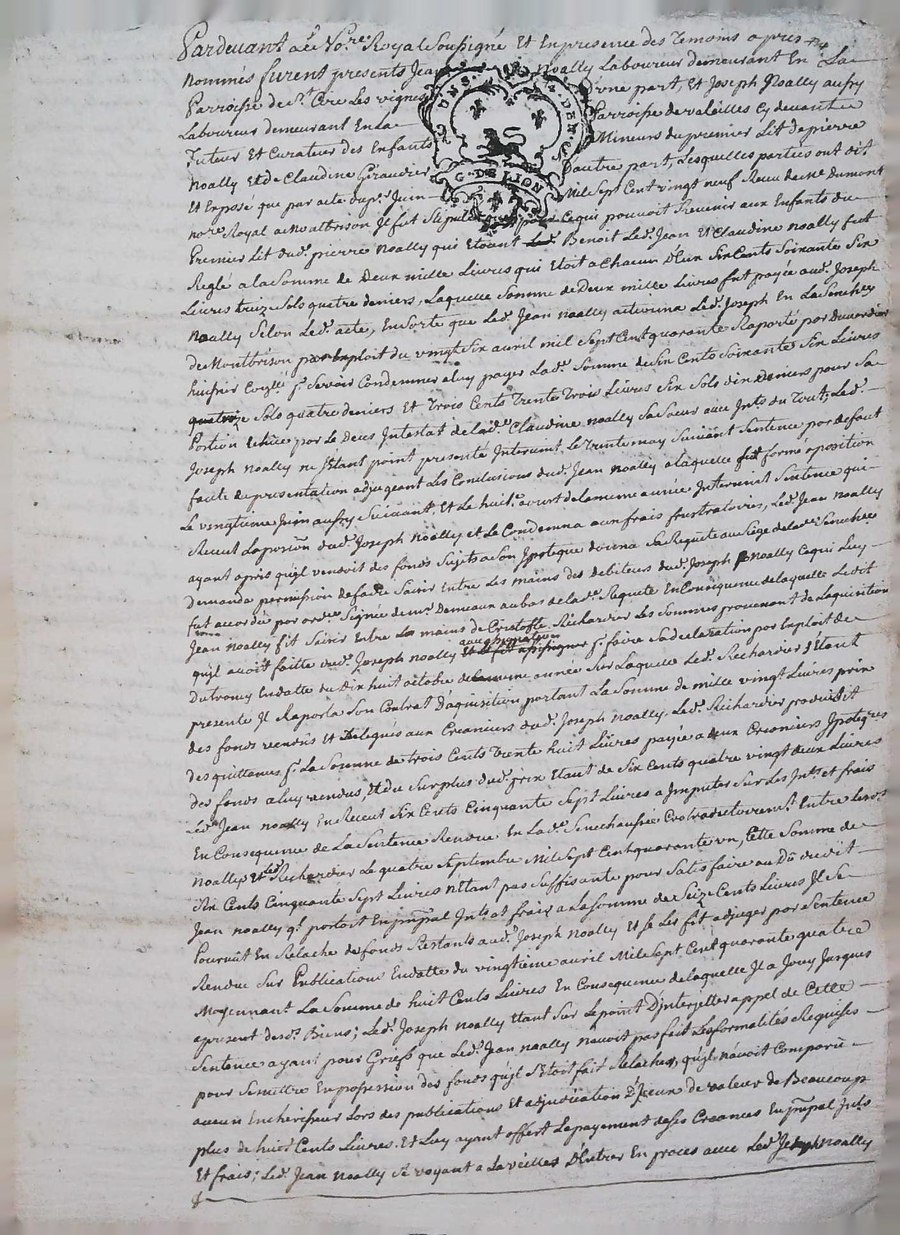 Pardevant Le No.re Royal Soussigné Et En presence des Temoins apres
nommés furent presents Jean Noally Laboureur demeurant En La
Parroisse de St. Cire Les vignes d'vne part, Et Joseph Noally aussy
Laboureur demeurant En La Parroisse de valeilles Cy devant
Tuteur Et Curateur des Enfants Mineurs du premier Lit de pierre
Noally Et de Claudine Giraudier d'autre part, Lesquelles parties ont dit
Et Exposé que par acte du Juin Mil Sept Cent vingt neuf Receu de Me Dumont
No.re Royal a Montbrison Il fut Stipulé que pour Cequi pouvoit Revenir aux Enfants du
Premier Lit dud. pierre Noally qui Etoient Led. Benoit Led. Jean Et Claudine Noally fut
Reglé a la Somme de Deux mille Livres qui Etoit a Chacun D'Eux Six Cents Soixante Six
Livres treize Sols quatre deniers, Laquelle Somme de Deux mille Livres fut payée aud. Joseph
Noally Selon Led. acte, En Sorte que Led. Jean Noally actionna Led. Joseph En La Senchée
de Montbrison par Exploit du vingt Six avril mil Sept Cent quarante Raporté par
huissier p.r Se voir Condemner a luy payer Lad. Somme de Six Cents Soixante Six Livres
Sols quatre deniers Et Trois Cents Trente Trois Livres Six Sols dix Deniers pour Sa
Portion Echüe par Le deces Intestat de Lad. Claudine Noally Sa Soeur avec Int.s du Tout; Led.
Joseph Noally ne S'Etant point presenté Intervint Le Trente may Suivant Sentence par defaut
faute de presentation adjugeant Les Conclusions dud. Jean Noally a laquelle fut formé oposition
Le vingtieme Juin aussy Suivant Et Le huit.e aoust de La meme année Intervint Sentence qui
Receut L'oposi.on dud. Joseph Noally et Le Condemna aux frais frustratoires, Led. Jean Noally
ayant apris qu'il vendoit des fonds Sujets a Son Ypoteque donna Sa Requete au Siege de lad. Senchée
demanda permission de faire Saisir Entre Les mains des debiteurs dud. Joseph Noally Cequi Luy
fut accordée par ord.ce Signée de Mr. Demeaux au bas de lad. Requete En Consequence de laquelle Ledit
Jean Noally fit Saisir Entre Les mains de Cristofle Richardier Les Sommes provenant de Laquisition
qu'il avoit faitte dud. Joseph Noally avec assignation p.r faire Sa declaration par Exploit de
Dutroncy En datte du dix huit octobre de La meme année Sur Laquelle Led. Richardier S'Etant
presenté Il Raporta Son Contrat d'aquisition portant La Somme de mille vingt Livres prix
des fonds vendus Et Delegués aux Creanciers dud. Joseph Noally. Led. Richardier produisit
des quittances p.r La Somme de trois Cents Trente huit Livres payée a deux Creanciers Ypoteques
des fonds a luy vendus, Et du Surplus dud. prix Etant de Six Cents quatre vingt deux Livres
Led. Jean Noally En Receut Six Cents Cinquante Sept Livres a Imputer Sur Les Int.s et frais
En Consequence de La Sentence Rendue En Lad. Senechaussée Contradictoirem.t Entre Les d.s
Noally et Led. Richardier Le quatre Septembre Mil Sept Cent quarante vn, Cette Somme de
Six Cents Cinquante Sept Livres n'Etant pas Suffisante pour Satisfaire au Dû dudit
Jean Noally q.i portoit En prin.pal Int.s et frais a La Somme de Seize Cents Livres Il Se
Pourvut En Relache des fonds Restants aud. Joseph Noally Et Se Les fit adjuger par Sentence
Rendue Sur Publications En datte du vingtieme avril Mil Sept Cent quarante quatre
Moyennant La Somme de huit Cents Livres En Consequence de laquelle Il a Jouy Jusques
apresent desd. Biens; Led. Joseph Noally Etant Sur Le point D'Interjetter appel de Cette
Sentence ayant pour Griefs que Led. Jean Noally n'avoit pas fait Les formalités Requises
pour Se mettre En possession des fonds qu'il S'Etoit fait Relacher, qu'il n'avoit Comparû
aucun Encherisseur Lors des publications Et adjudication D'Iceux de valeur de Beaucoup
plus de huit Cents Livres. Et Luy ayant offert Le payement de Ses Creances En prin.pal Int.s
Et frais; Led. Jean Noally Se voyant a La veille D'Entrer En proces avec Led. Joseph Noally
G. DE LION